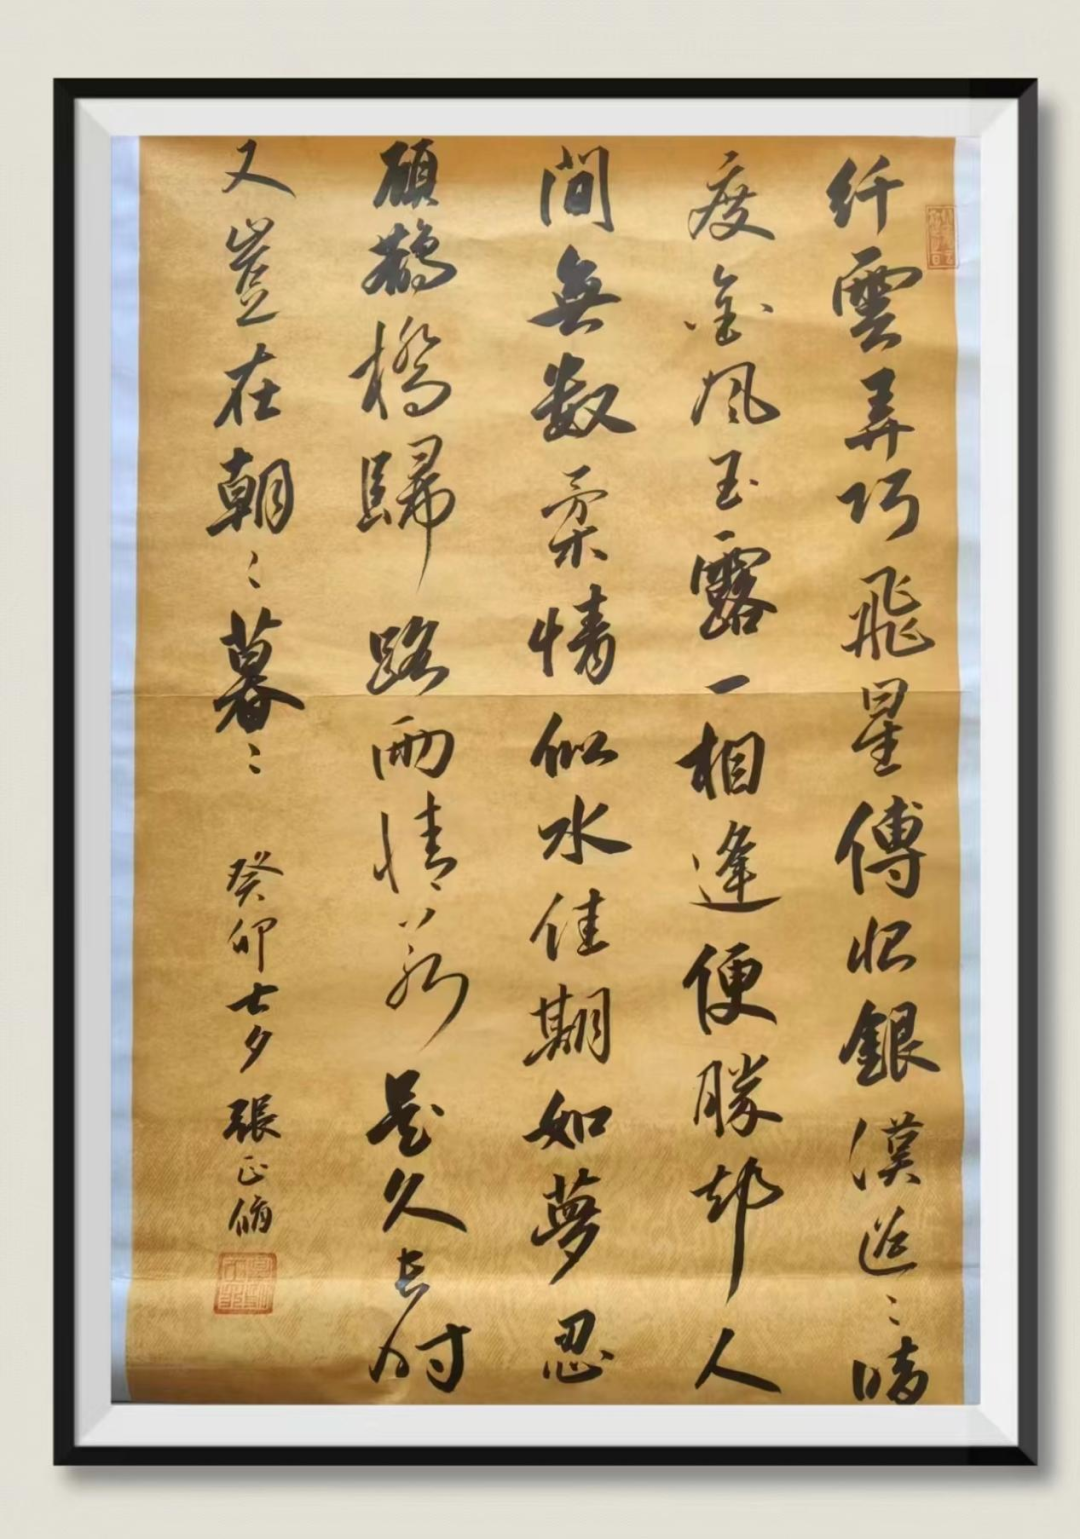 纤雲弄巧飛星傳恨銀漢迢〻暗
度金風玉露一相逢便勝却人
間無数柔情似水佳期如夢忍
顧鵲橋歸路兩情若是久长时
又豈在朝〻暮〻 癸卯七夕 張正